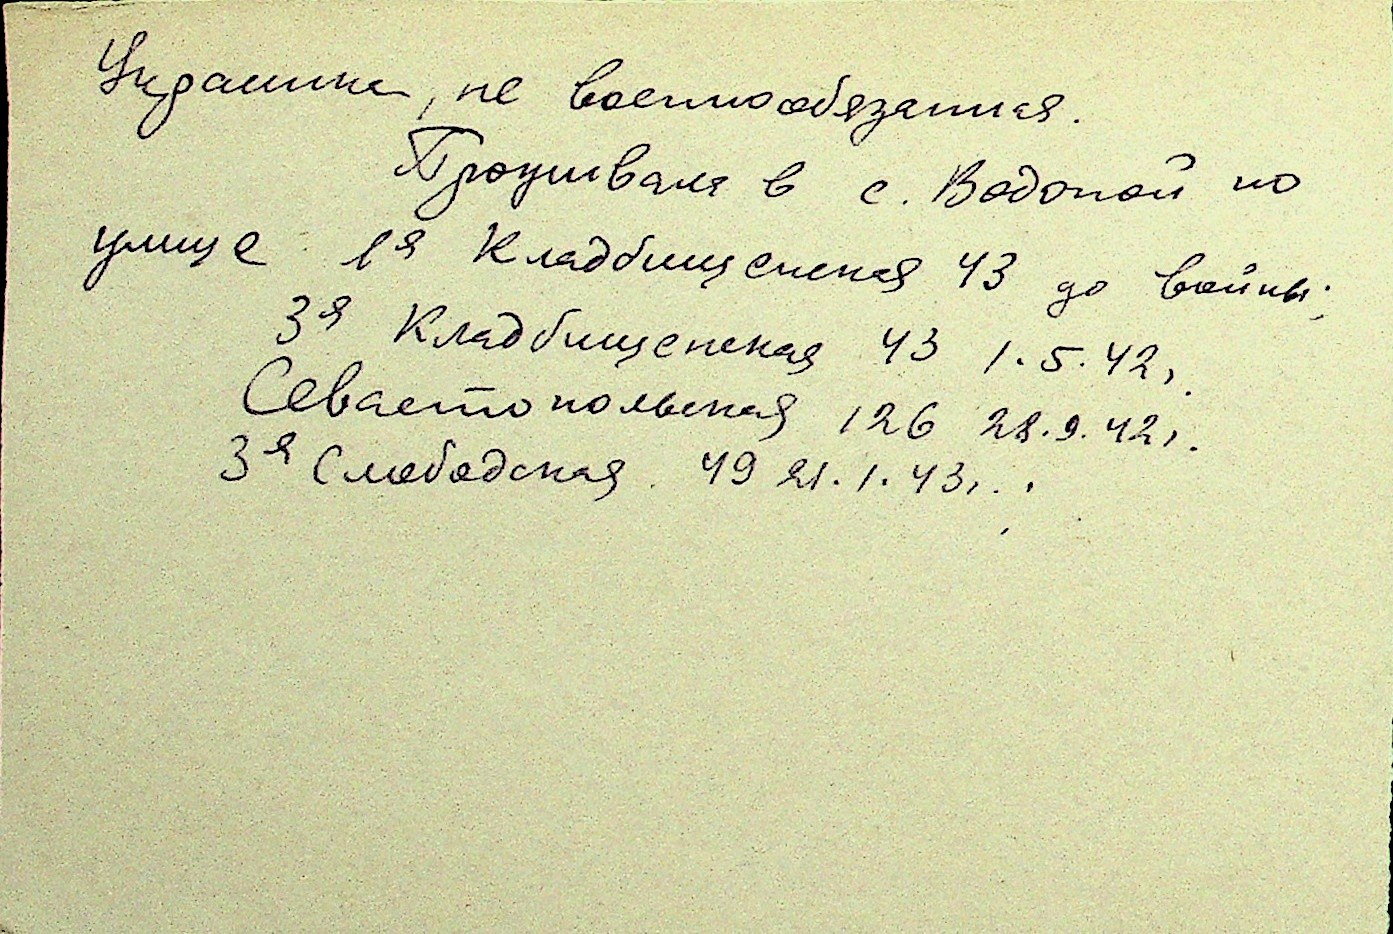 Украинка, не военнообязанная.
Проживала в с. Водопой по
улице 1я Кладбищенская 43 до войны;
3я Кладбищенская 43 1.5.42,
Севастопольская 126 28.9.42,
3я Слободская 49 21.1.43,